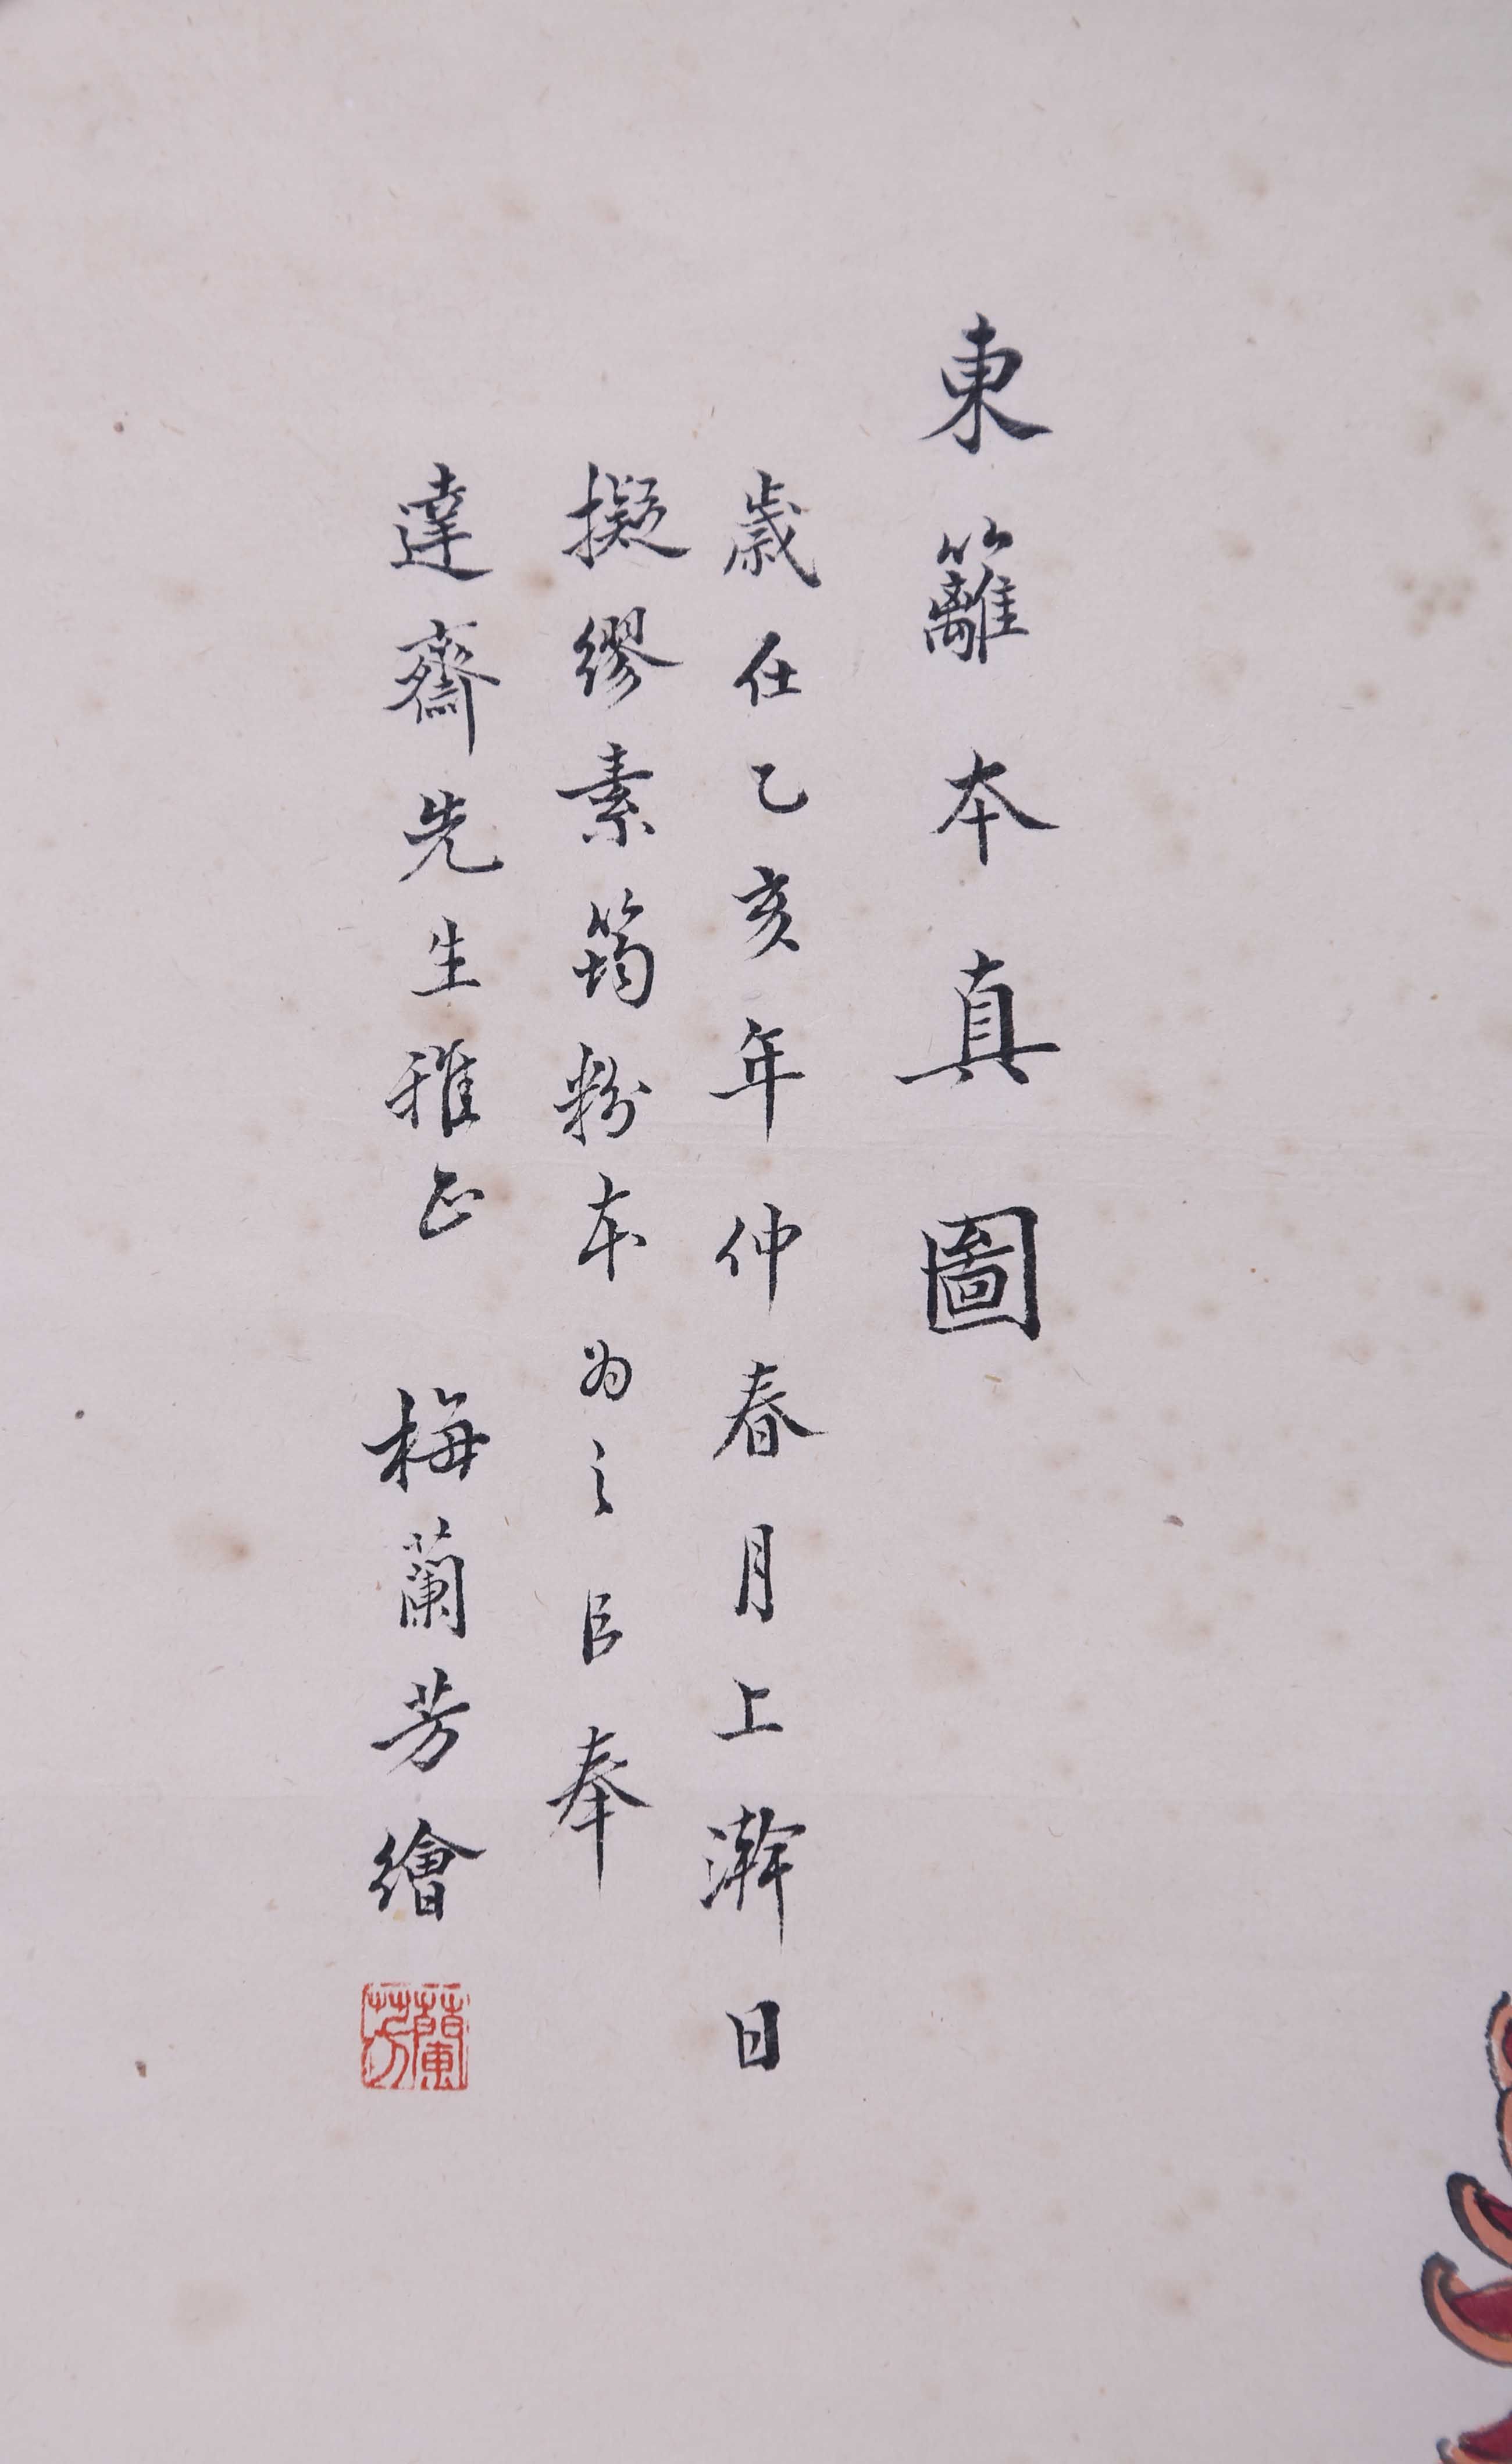 東籬本真圖
歲在乙亥年仲春月上澣日
擬繆素筠粉本為之以奉
達齋先生雅正 梅蘭芳繪
蘭芳